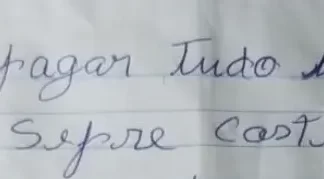 pagar Tudo
Sepre Cast